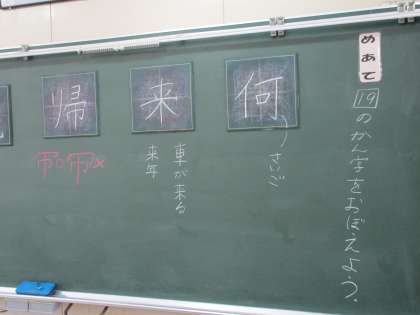 めあて
19のかん字をおぼえよう。
何
さいご
来
車が来る
来年
帰